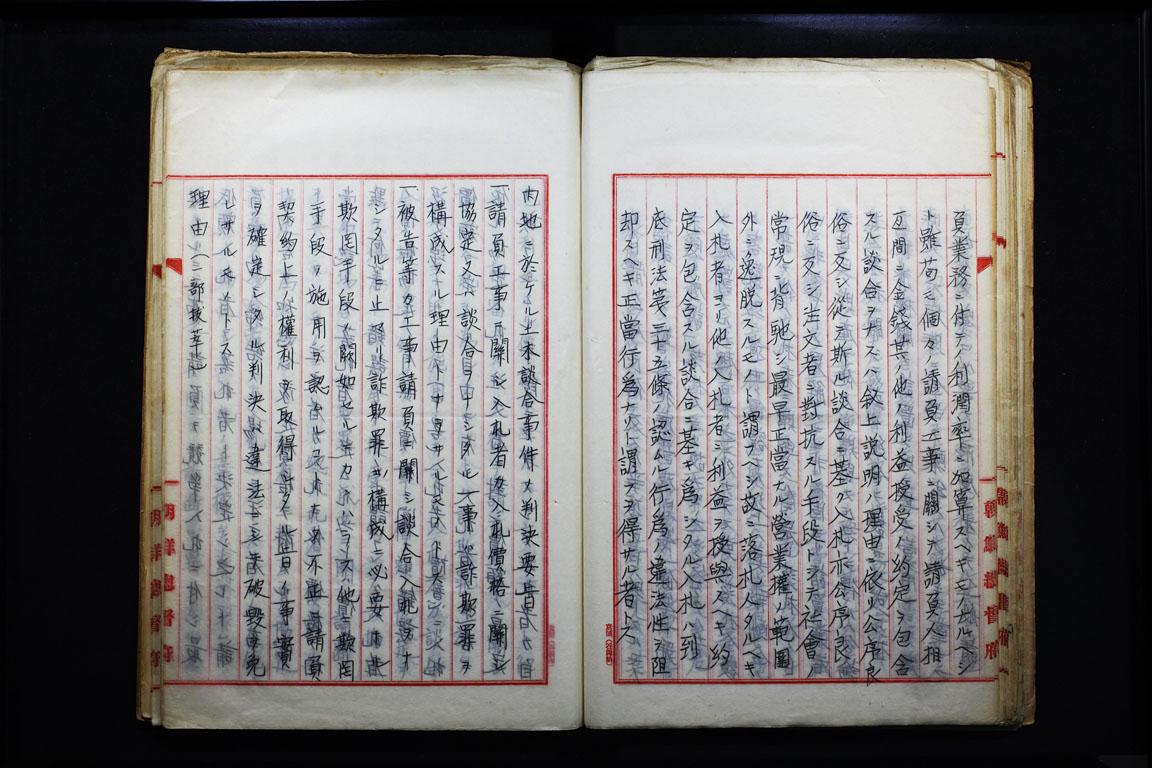 夏業務ニ付テノ利潤率ニ加算スヘキモノナルヘシ
ト雖苟モ個々ノ請負工事ニ關シテ請負人相
互間ニ金錢其ノ他ノ利益授受ノ約定ヲ包含
スル談合ヲナスハ敍上説明ノ理由ニ依リ公序良
俗ニ反シ從テ斯ル談合ニ基ク入札亦公序良
俗ニ反シ注文者ニ對抗スル手段トシテ社會ノ
常規ニ背馳シ最早正當ナル營業權ノ範圍
外ニ逸脱スルモノト謂フヘシ故ニ落札人タルヘキ
入札者ヨリ他ノ入札者ニ利益ヲ授與スヘキ約
定ヲ包含スル談合ニ基キ爲シタル入札ハ到
底刑法第三十五條ノ認ムル行爲ノ違法性ヲ阻
却スヘキ正當行爲ナリト謂フヲ得サル者トス
内地ニ於ケル土木談合事件ノ判決要旨
一、請負工事ニ關シ入札者カ入札價格ニ關シ
協定又ハ談合ヲ申シタル事ハ詐欺罪ヲ
構成スル理由ト
一、被告等カ工事請負ニ關シ談合入札ヲナ
シタルニ止 詐欺罪ヲ構成ニ必要
欺罔手段ヲ闕如セル 他ニ欺罔
手段ヲ施用 認 不正請負
契約上ノ權利ヲ取得シタル旨ノ事實
ヲ確定シタル判決ハ違法 破毀ヲ免
レサルモノトス
理由(三部拔萃)
朝鮮總督府